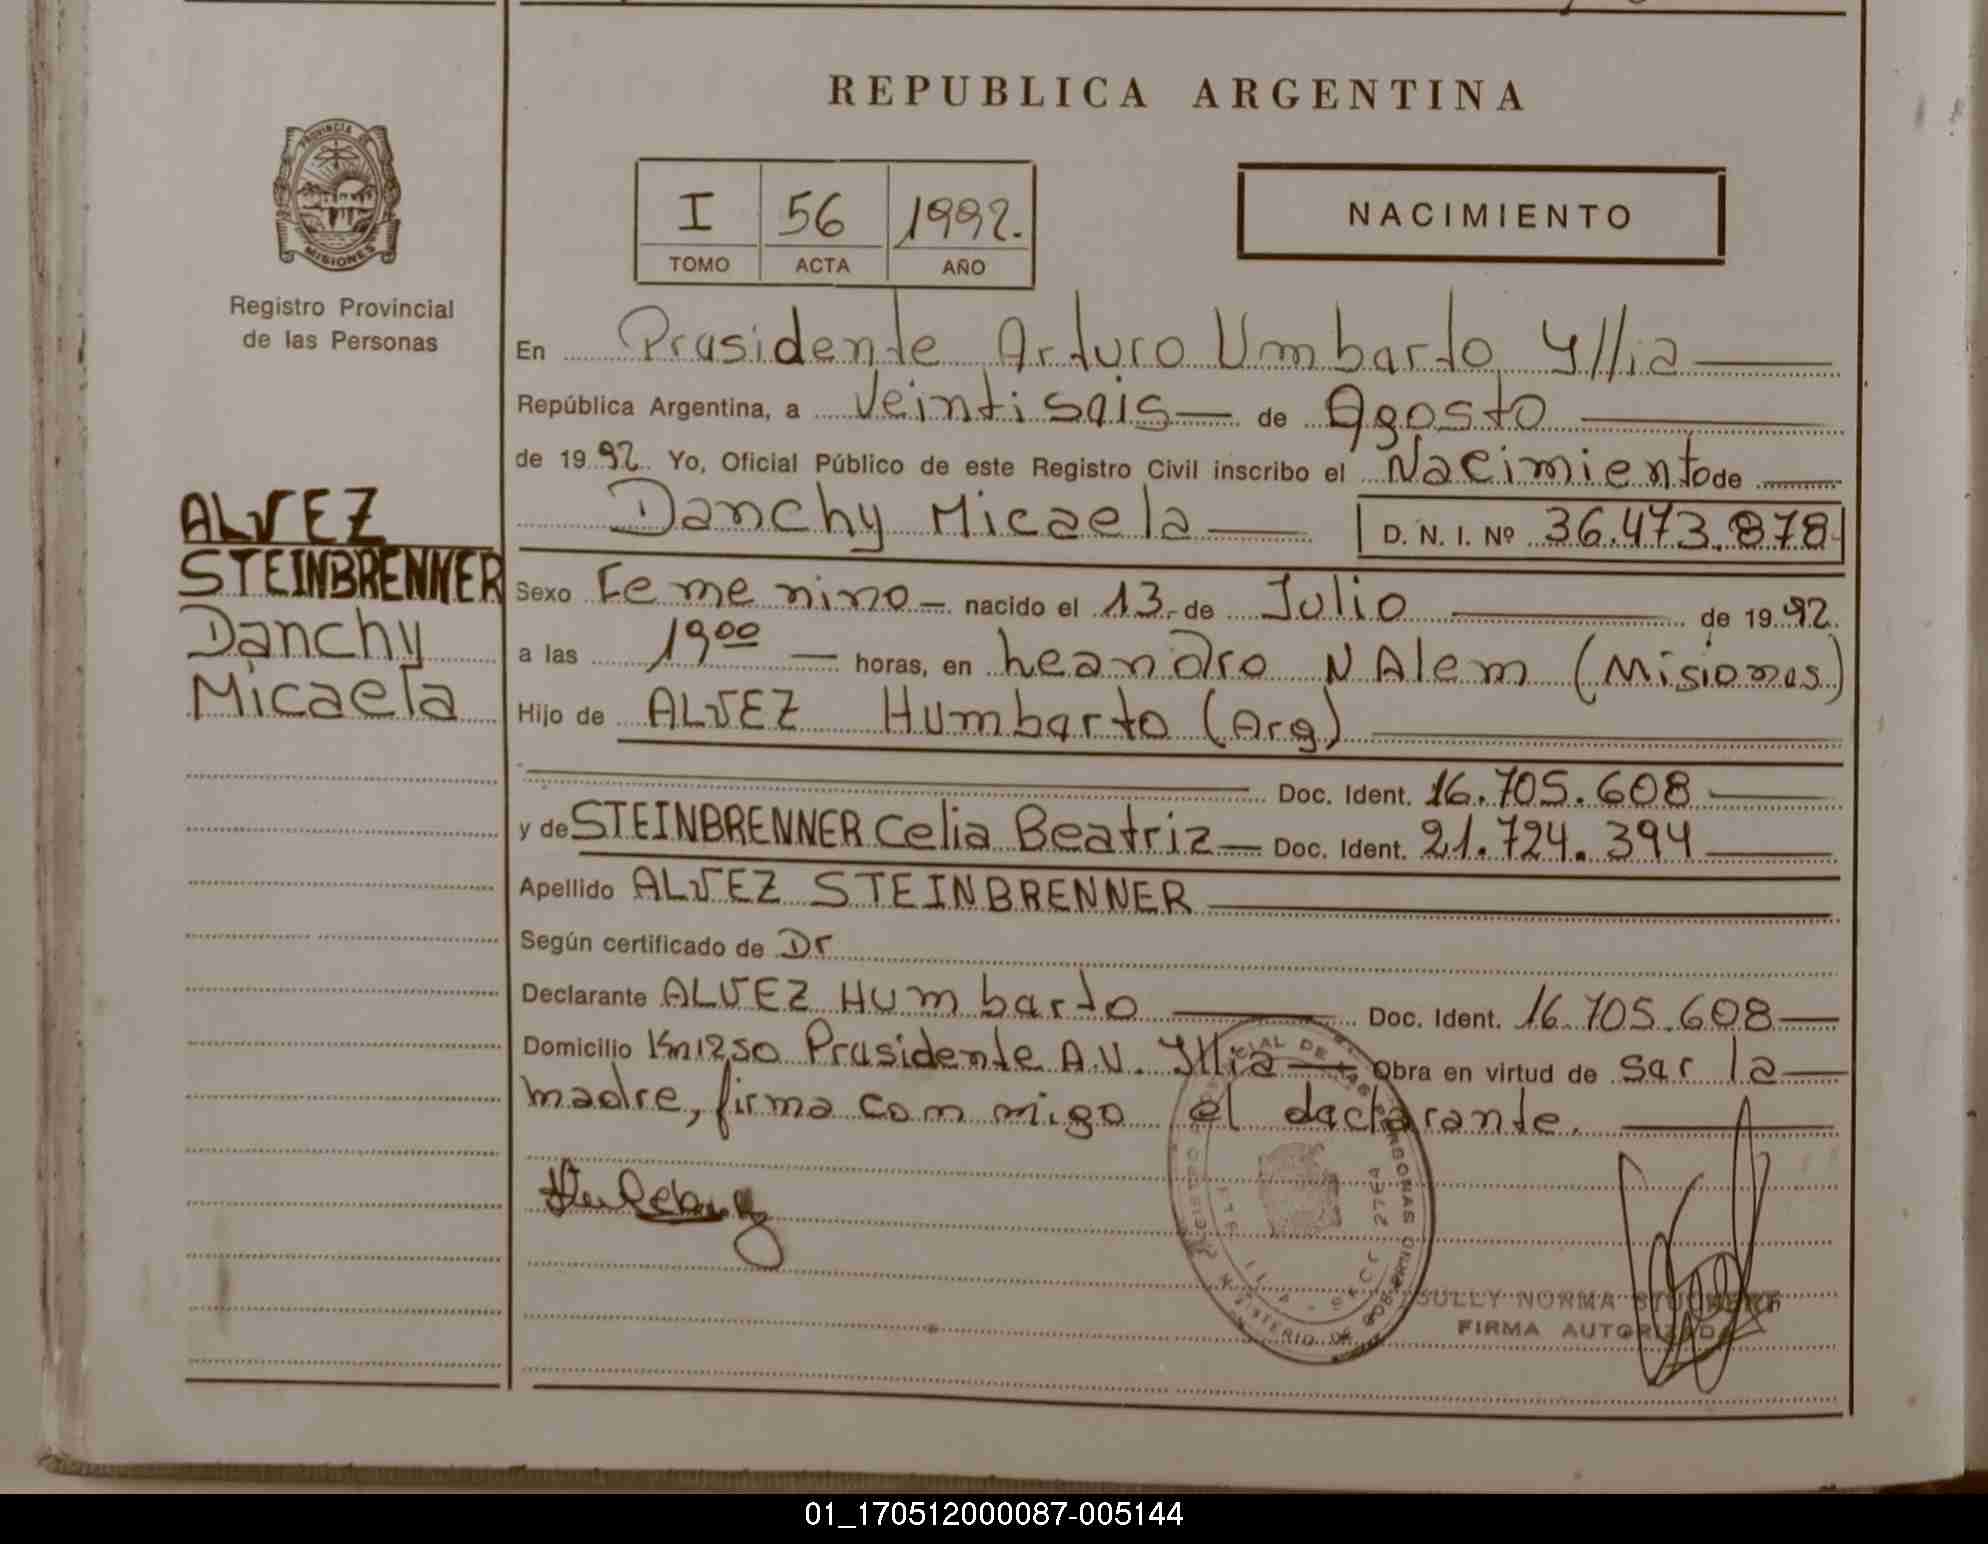 REPUBLICA ARGENTINA
PROVINCIA DE
MISIONES
Registro Provincial
de las Personas
I 56 1992.
TOMO ACTA AÑO
NACIMIENTO
En Presidente Arturo Umberto Yllia
República Argentina, a Veintiseis de Agosto
de 1992 Yo, Oficial Público de este Registro Civil inscribo el Nacimiento de
Danchy Micaela D. N. I. Nº 36.473.878
ALVEZ
STEINBRENNER
Danchy
Micaela
Sexo Femenino nacido el 13 de Julio de 1992.
a las 19⁰⁰ horas, en Leandro N Alem (Misiones)
Hijo de ALVEZ Humberto (Arg)
Doc. Ident. 16.705.608
y de STEINBRENNER Celia Beatriz Doc. Ident. 21.724.394
Apellido ALVEZ STEINBRENNER
Según certificado de Dr
Declarante ALVEZ Humberto Doc. Ident. 16.705.608
Domicilio Km1250 Presidente A.U. Yllia Obra en virtud de ser la
madre, firma con migo el declarante.
MINISTERIO DE GOBIERNO
SULLY NORMA
FIRMA AUTORIZADA
01_170512000087-005144